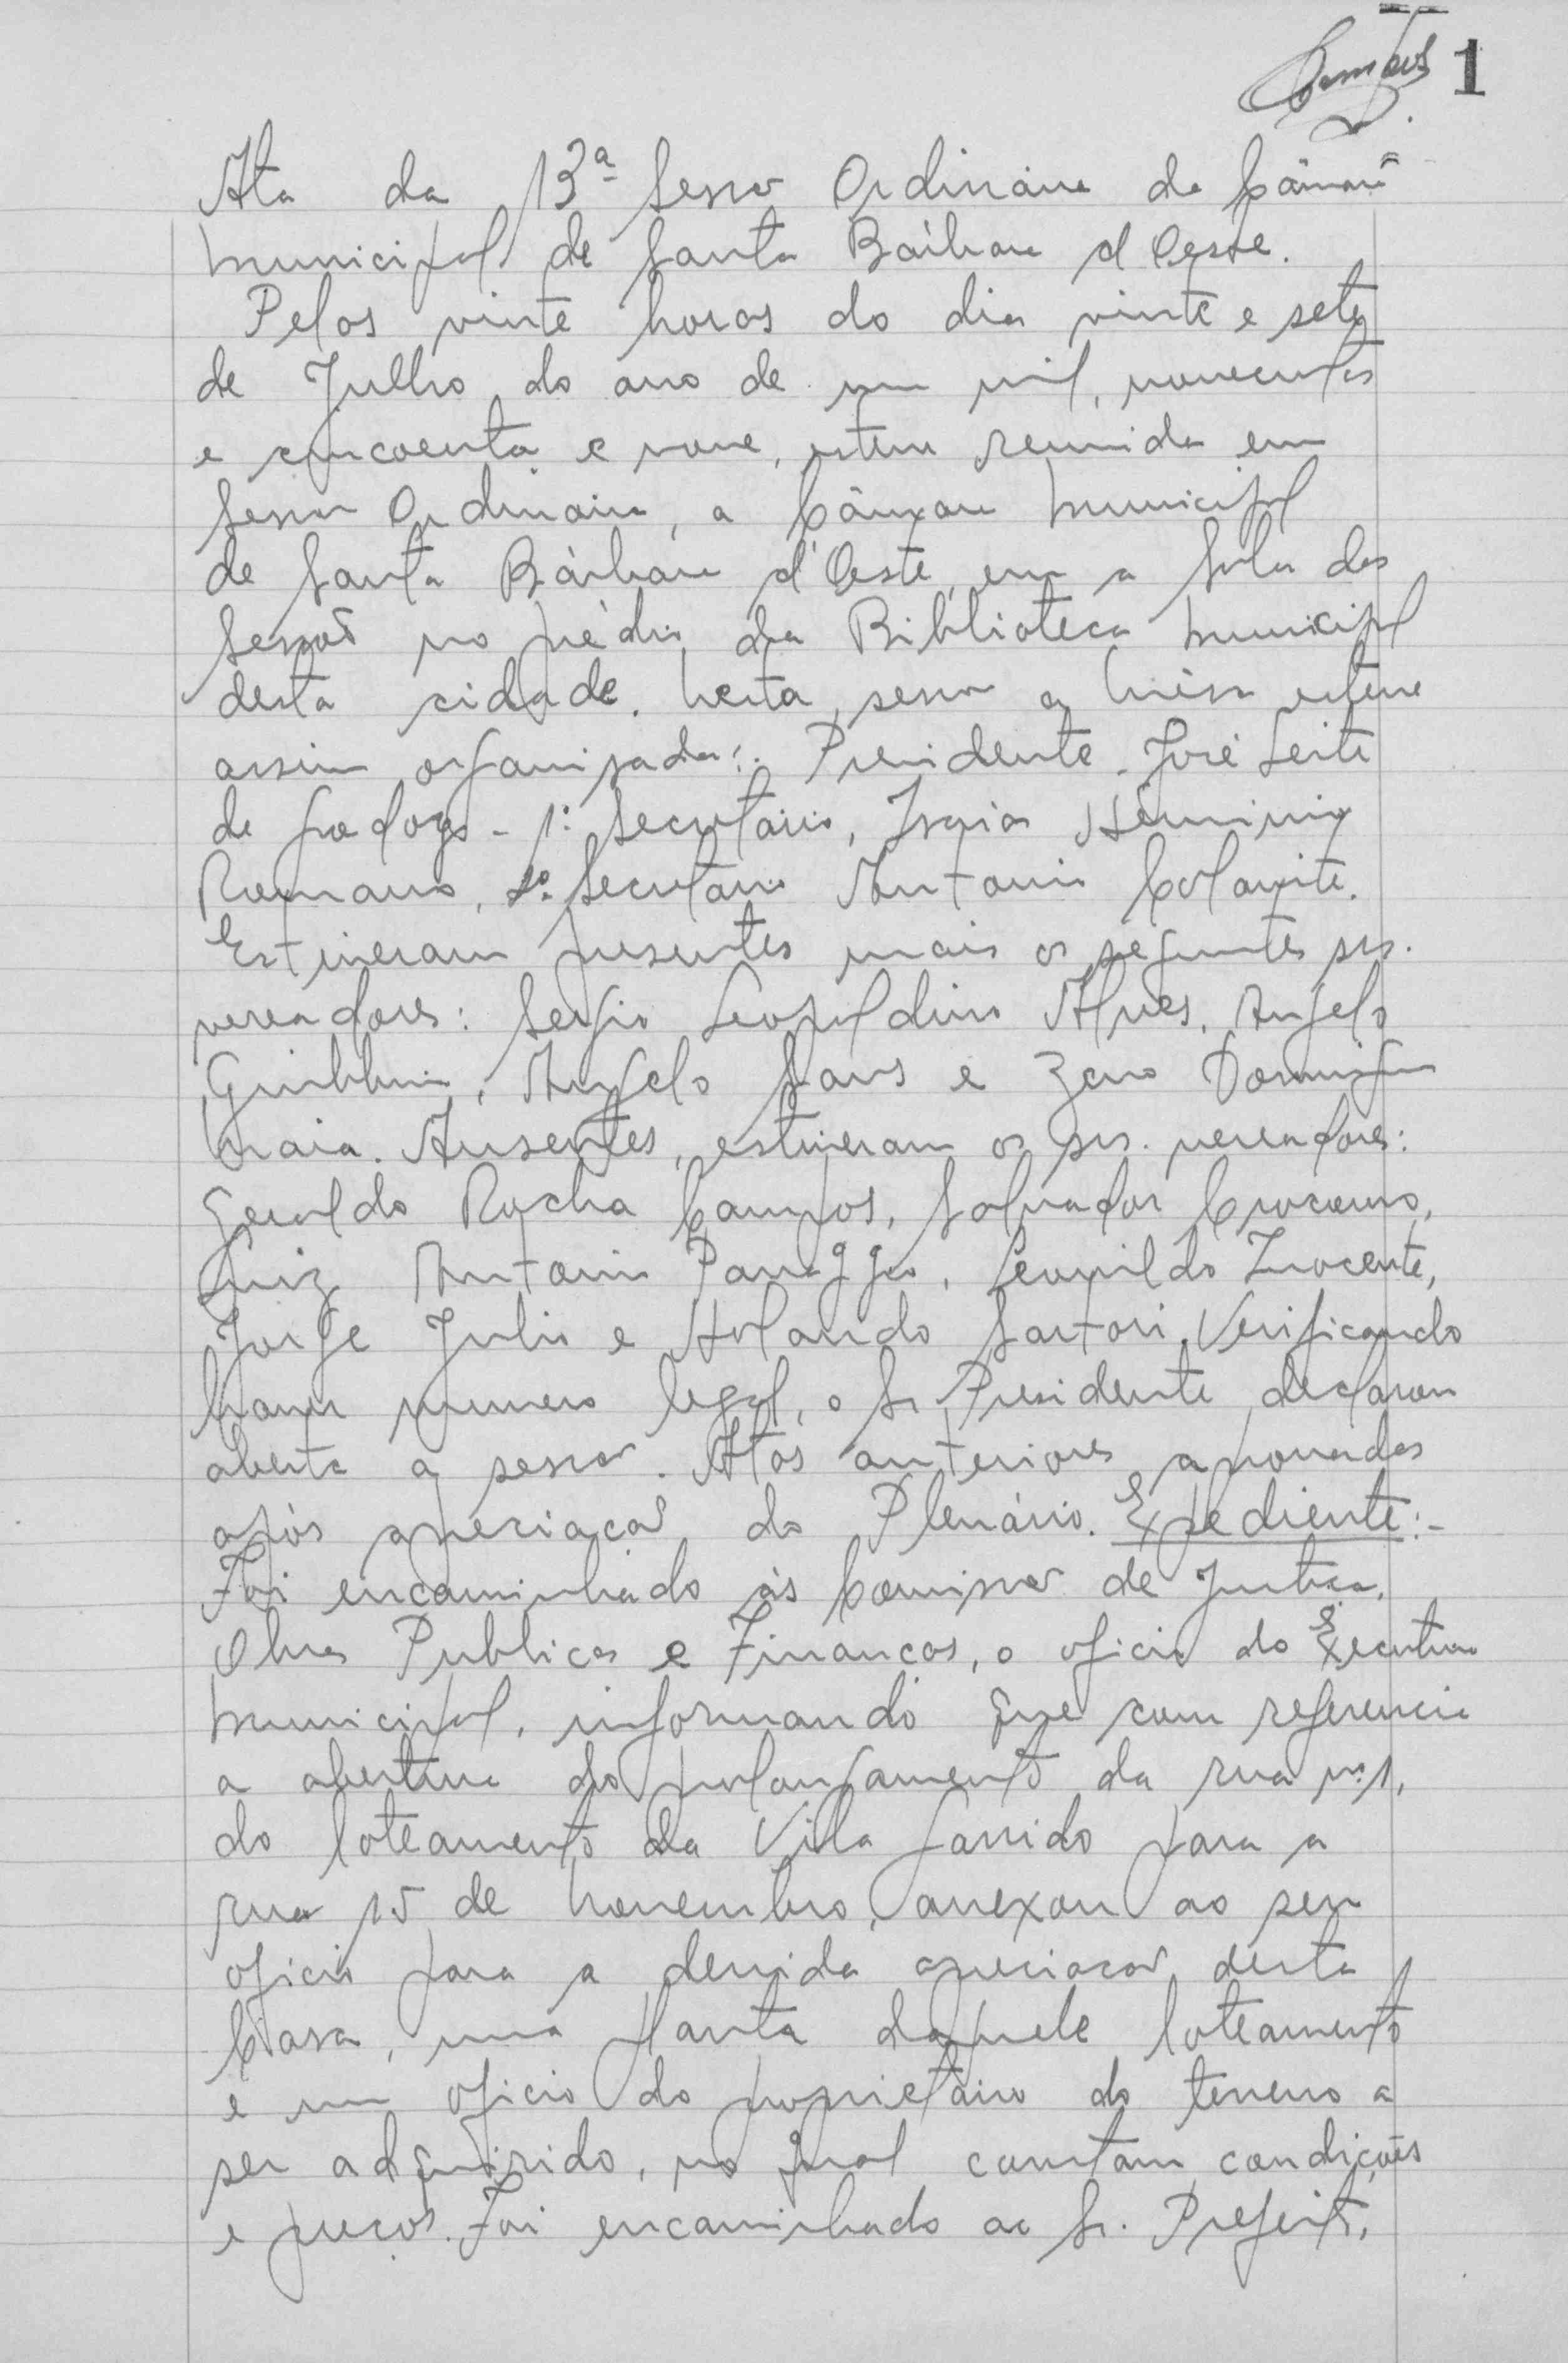 1
Ata da 13ª Sessão Ordinária da Câmara
Municipal de Santa Bárbara d'Oeste.
Pelas vinte horas do dia vinte e sete
de Julho do ano de um mil, novecentos
e cincoenta e nove, esteve reunida em
Sessão Ordinária, a Câmara Municipal
de Santa Bárbara d'Oeste, em a Sala das
Sessões no prédio da Biblioteca Municipal
desta cidade. Nesta sessão a Mêsa esteve
assim organizada:. Presidente - José Leite
de Godoys - 1º Secretário, Isaias Herminio
Romano, 2º Secretário Antonio
Estiveram presentes mais os seguintes srs.
vereadores: Sergio Leopoldino Alves, Angelo
Giubbina, Angelo Sans e Zeno Domingos
Maia. Ausentes, estiveram os srs. vereadores:
Geraldo Rocha Campos, Salvador
Luiz Antonio Panaggio, Leonildo Inocente,
Jorge Julio e Holando Sartori. Verificando
haver numero legal, o Sr. Presidente declarou
aberta a sessão. Atas anteriores aprovadas
após apreciação do Plenário. Expediente:-
Foi encaminhado às Comissão de Justiça,
Obras Publicas e Finanças, o oficio do Executivo
Municipal, informando que com referencia
a abertura do prolongamento da rua nº 1,
do loteamento da Vila Garrido para a
rua 15 de Novembro, anexou ao seu
oficio para a devida apreciação desta
Casa, uma planta daquele loteamento
e um oficio do proprietário do terreno a
ser adquirido, no qual constam condições
e preços. Foi encaminhado ao Sr. Prefeito,